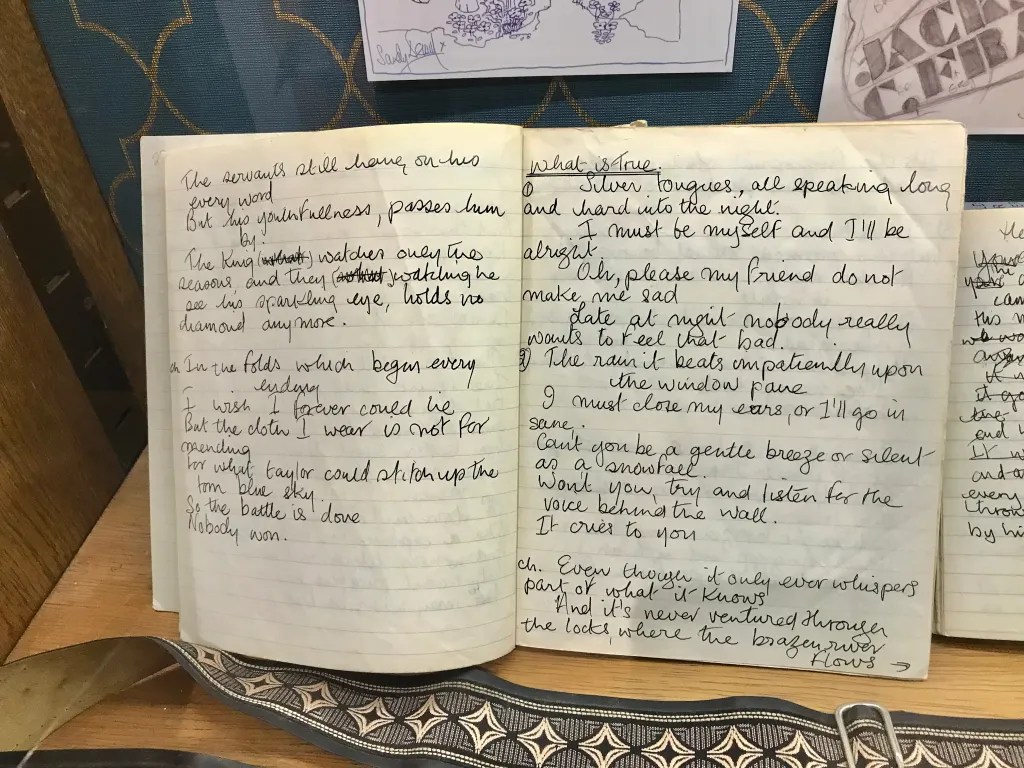 Sandy
JACK
The servants still hang on his
every word
But his youthfullness, passes him
by.
The King () watches only the
seasons, and they () watching he
see his sparkling eye, holds no
diamond anymore.
ch In the folds which began every
ending
I wish I forever could lie
But the cloth I wear is not for
mending
for what taylor could stitch up the
torn blue sky.
So the battle is done
Nobody won.
What is True.
① Silver tongues, all speaking long
and hard into the night.
I must be myself and I'll be
alright.
Oh, please my friend do not
make me sad
Late at night nobody really
wants to feel that bad.
② The rain it beats impatiently upon
the window pane
I must close my ears, or I'll go in
sane.
Cant you be a gentle breeze or silent
as a snowfall.
Won't you, try and listen for the
voice behind the wall.
It cries to you
ch. Even though it only ever whispers
part of what it knows
And it's never ventured through
the locks, where the brazen river
flows →
He
cam
this
it
it
end
It w
and
every
throw
by hi